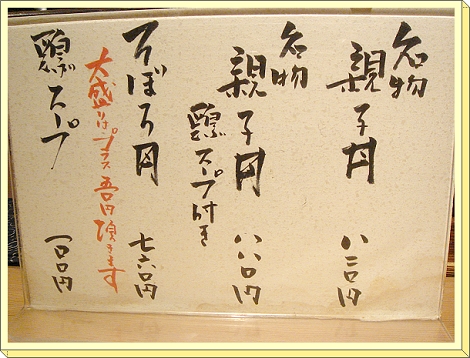 名物 親子丼 八二〇円
名物 親子丼 八八〇円
鶏スープ付き
そぼろ丼 七六〇円
大盛りはプラス百円頂きます
鶏スープ 一〇〇円